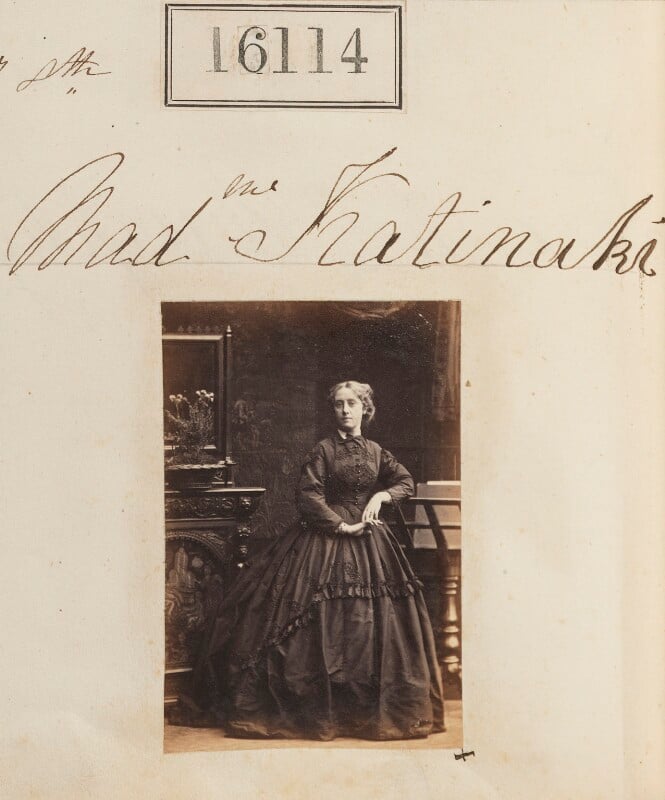 16114
Madme Katinaki